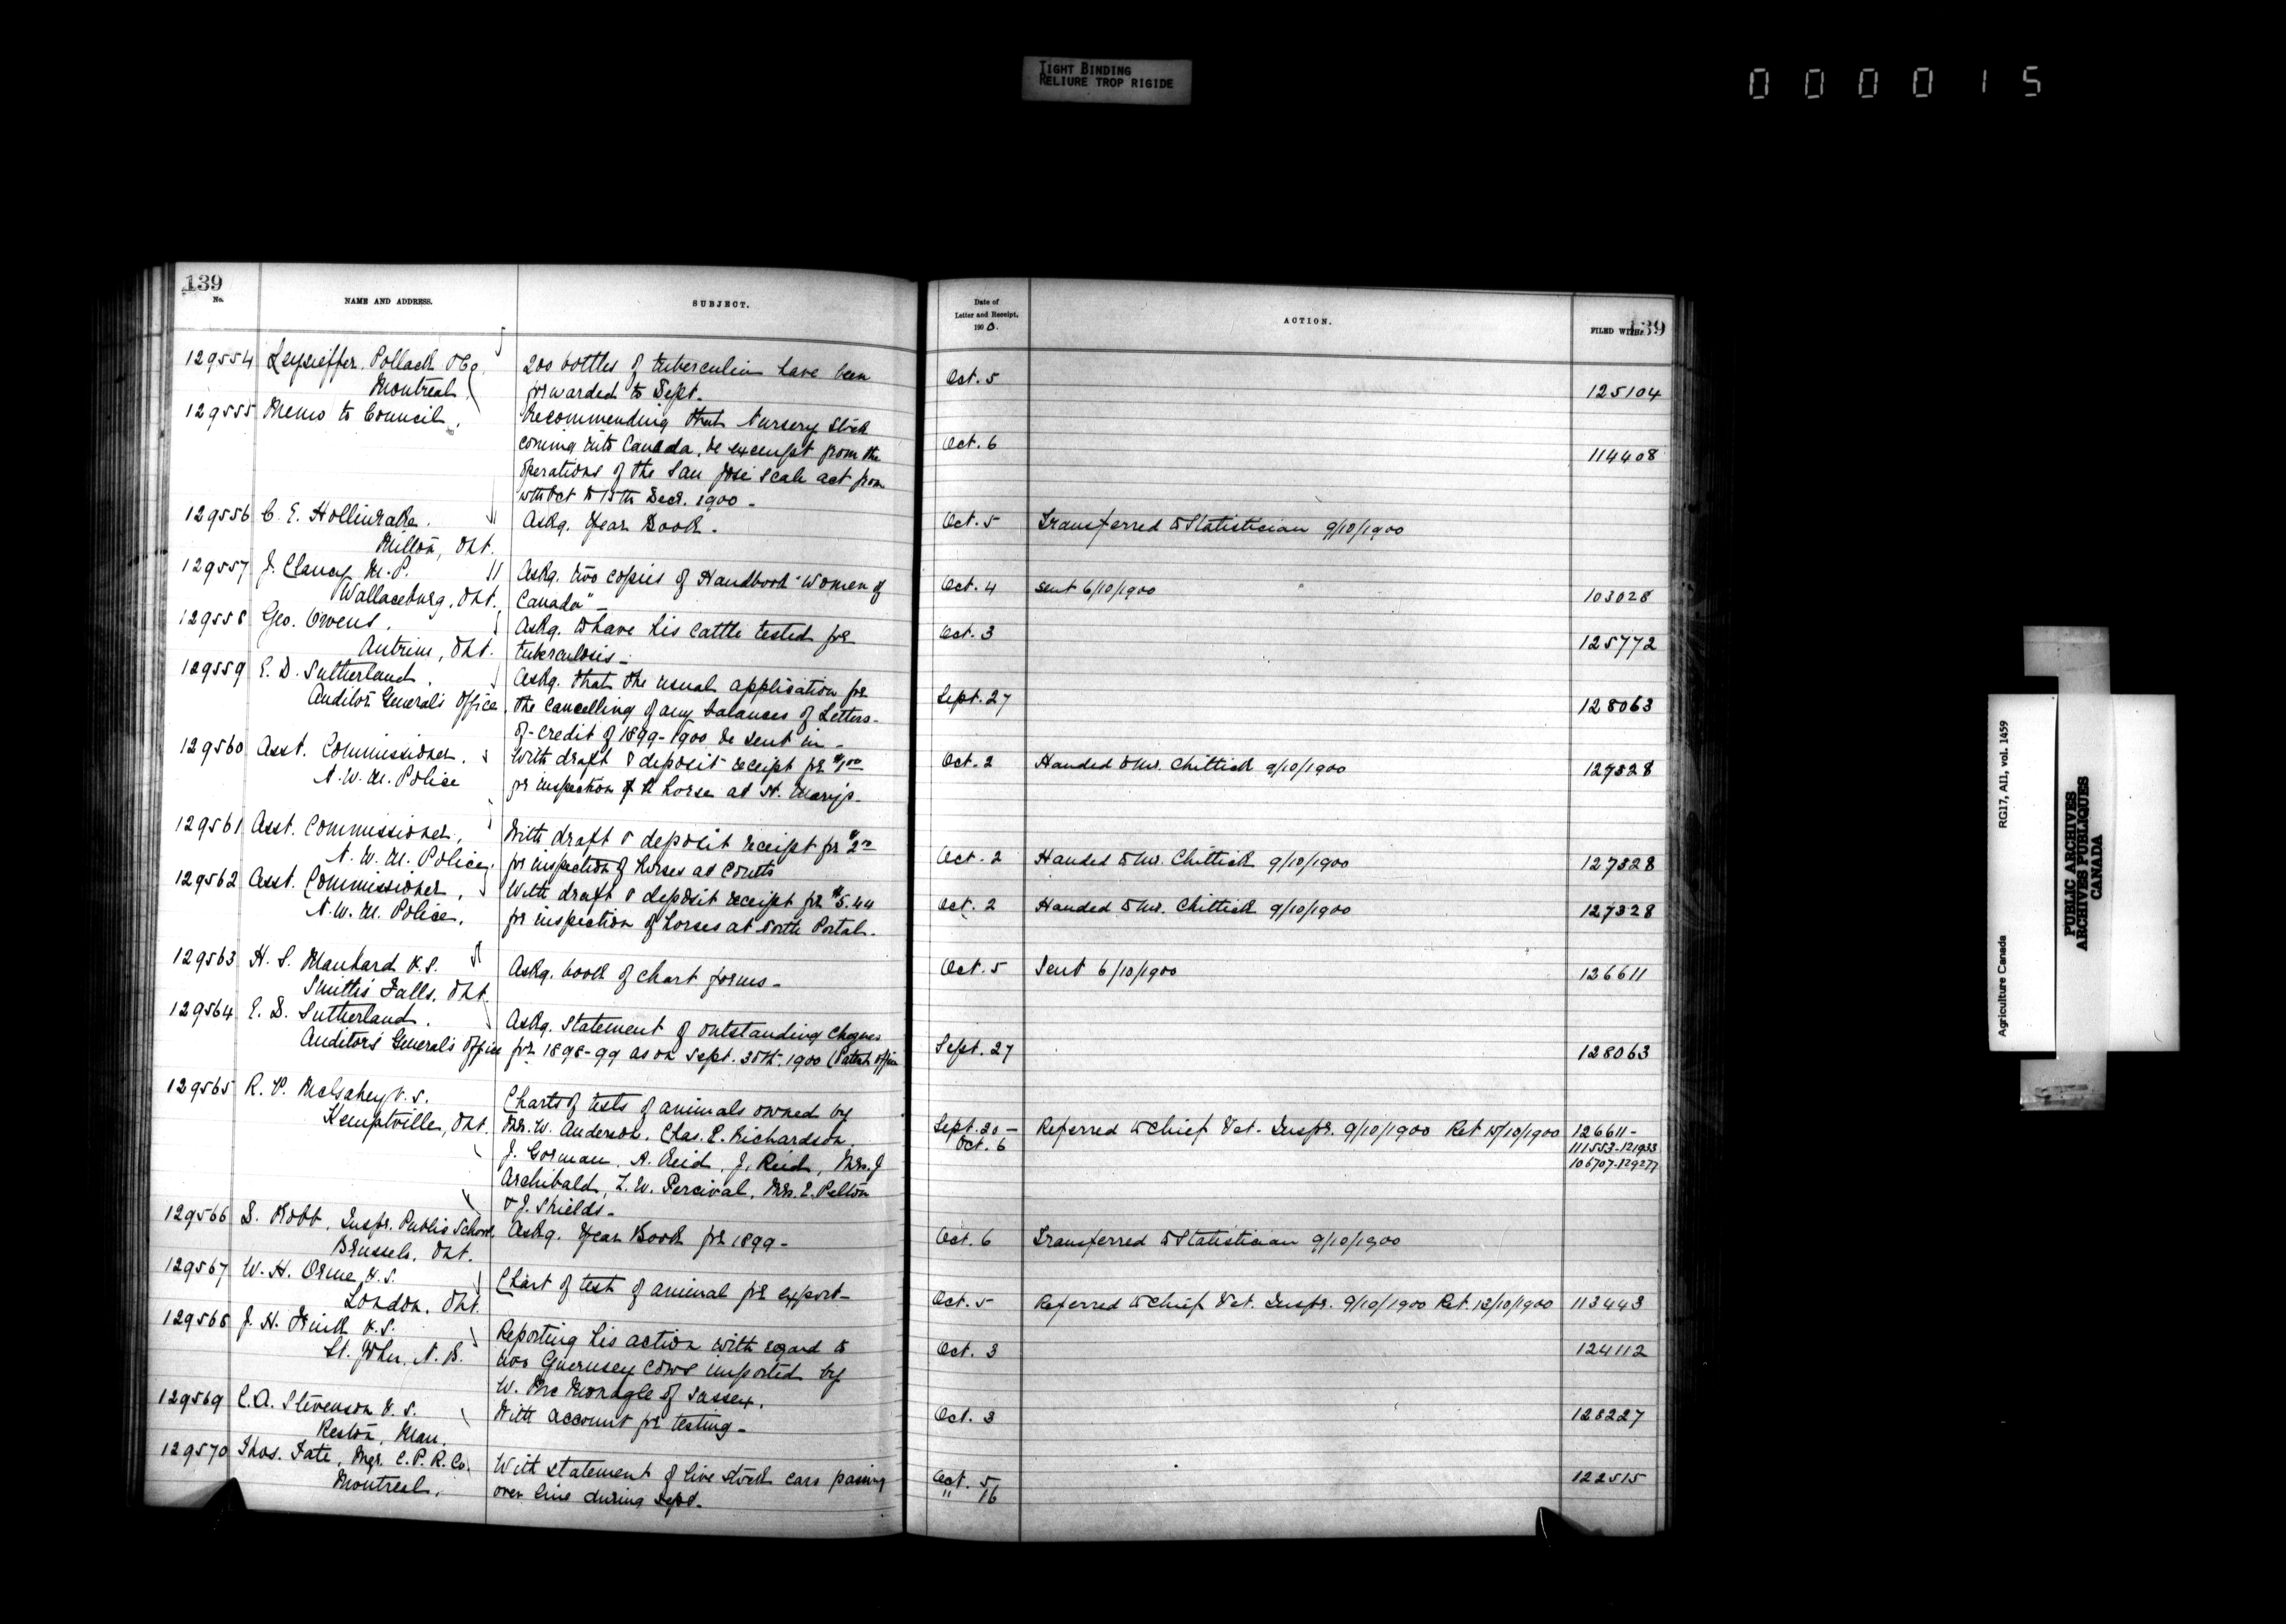 TIGHT BINDING
RELIURE TROP RIGIDE
000015
139
No.
NAME AND ADDRESS.
SUBJECT.
129554 Pollack & Co.
Montreal
200 bottles of tuberculin have been
forwarded to Dept.
129555 Memo to Council.
Recommending that Nursery Stock
coming into Canada, be exempt from the
operations of the San José Scale act from
Oct to 15th Decr. 1900 -
129556 C. E. Hollinrake.
Milton, Ont.
Askg. Year Book.
129557 J. Clancy M.P.
Wallaceburg, Ont.
Askg. two copies of Handbook "Women of
Canada" -
129558 Geo. Owens.
Antrim, Ont.
Askg. to have his cattle tested for
tuberculosis -
129559 E. D. Sutherland.
Auditor General's Office.
Askg. that the usual application for
the cancelling of any balances of Letters-
of-credit of 1899-1900 be sent in -
129560 Asst. Commissioner.
N. W. M. Police
With draft & deposit receipt for $1.00
for inspection of horse at St. Mary's.
129561 Asst. Commissioner,
N. W. M. Police.
With draft & deposit receipt for $2.00
for inspection of horses at Coutts
129562 Asst. Commissioner,
N. W. M. Police.
With draft & deposit receipt for $5.44
for inspection of horses at North Portal.
129563 H. S. Manhard V.S.
Smith's Falls, Ont.
Askg. book of chart forms -
129564 E. D. Sutherland.
Auditor's General's Office
Askg. statement of outstanding cheques
for 1898-99 as on Sept. 30th. 1900 (Patent office
129565 R. P. V.S.
Kemptville, Ont.
Charts of tests of animals owned by
Mr. W. Anderson, Chas. E. Richardson,
J. Gorman, A. Reid, J. Reid, Mrs. J
Archibald, T. W. Percival, Mrs. E. Pelton
& J. Shields -
129566 D. Robb, Inspr. Public School.
Brussels, Ont.
Askg. Year Book for 1899 -
129567 W. H. Orme V.S.
London, Ont.
Chart of test of animal for export -
129568 J. H. Frink V.S.
St. John, N. B.
Reporting his action with regard to
two Guernsey cows imported by
W. McMonagle of Sussex.
129569 C. A. Stevenson V.S.
Reston, Man.
With account for testing -
129570 Thos. Tate, Mgr. C. P. R. Co.
Montreal.
With statement of live stock cars passing
over line during Sept.
Date of
Letter and Receipt.
1900.
ACTION.
FILED WITH.
139
Oct. 5 125104
Oct. 6 114408
Oct. 5 Transferred to Statistician 9/10/1900
Oct. 4 Sent 6/10/1900 103028
Oct. 3 125772
Sept. 27 128063
Oct. 2 Handed to Mr. Chittick 9/10/1900 127328
Oct. 2 Handed to Mr. Chittick 9/10/1900 127328
Oct. 2 Handed to Mr. Chittick 9/10/1900 127328
Oct. 5 Sent 6/10/1900 126611
Sept. 27 128063
Sept. 20 - Referred to Chief Vet. Inspr. 9/10/1900 Ret 15/10/1900 126611 -
Oct. 6 111553-121933
106707-129277
Oct. 6 Transferred to Statistician 9/10/1900
Oct. 5 Referred to Chief Vet. Inspr. 9/10/1900 Ret. 12/10/1900 113443
Oct. 3 124112
Oct. 3 128227
Oct. 5 122515
" 16
Agriculture Canada RG17, AII, vol. 1459
PUBLIC ARCHIVES
ARCHIVES PUBLIQUES
CANADA